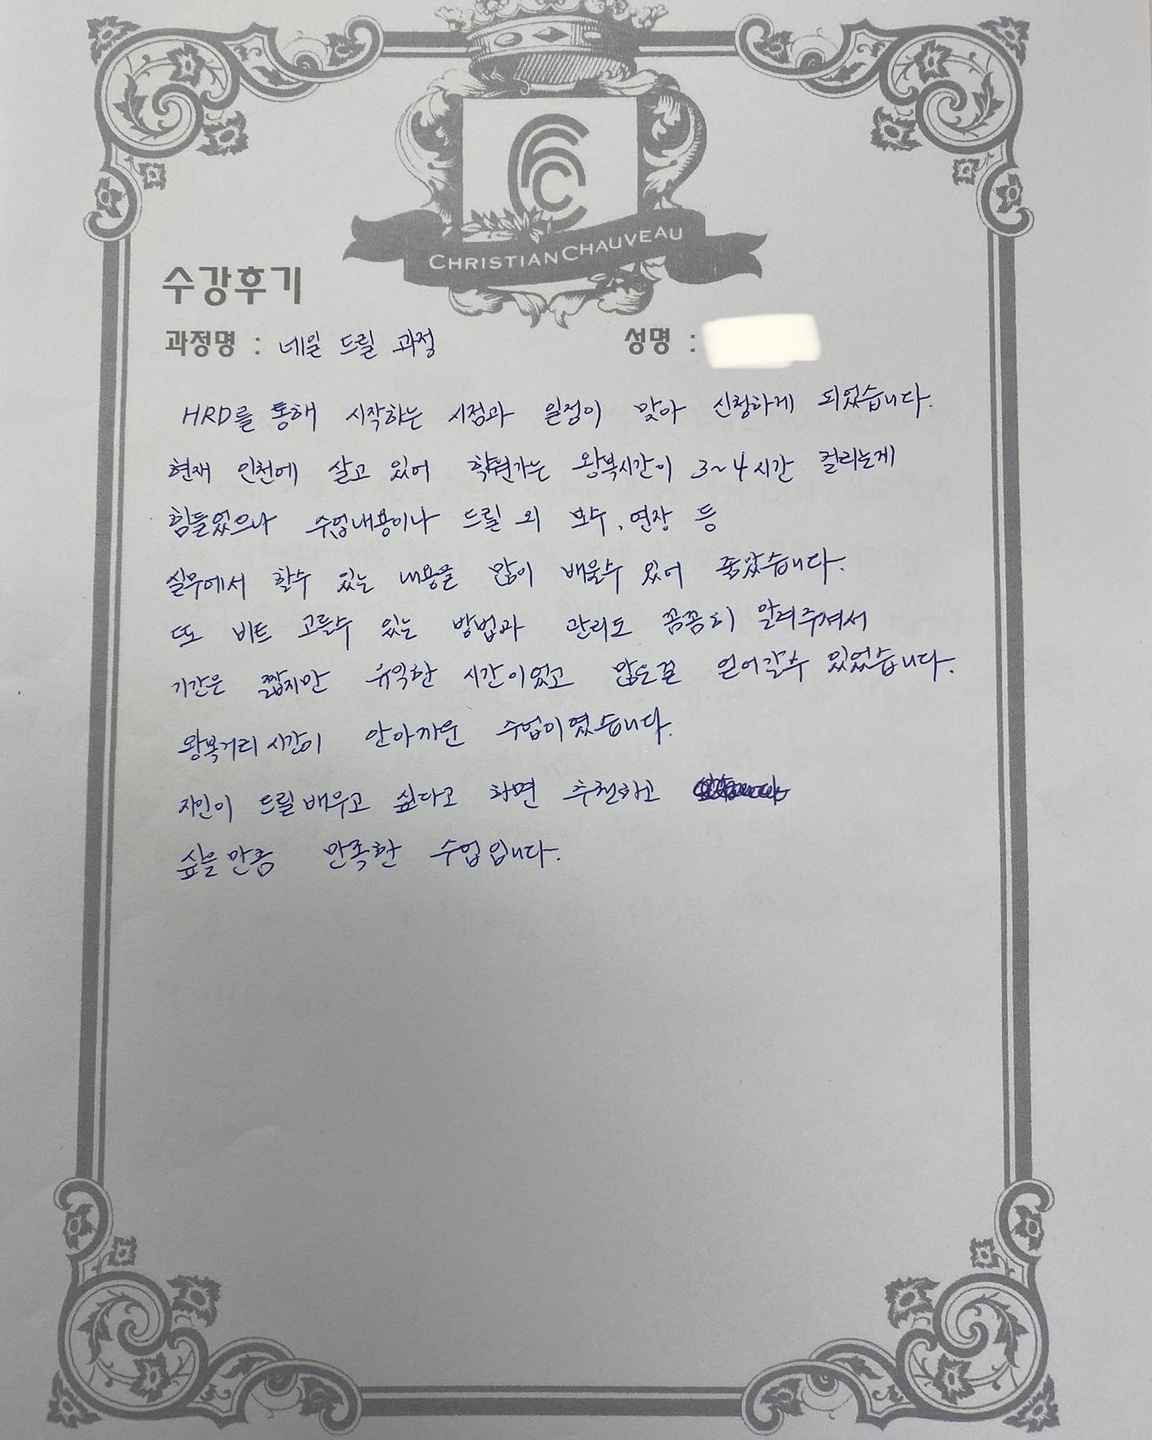 CHRISTIAN CHAUVEAU
수강후기
과정명 : 네일 드릴 과정 성명 :
HRD를 통해 시작하는 시점과 일정이 맞아 신청하게 되었습니다.
현재 인천에 살고 있어 학원가는 왕복시간이 3~4시간 걸리는게
힘들었으나 수업내용이나 드릴 외 보수, 연장 등
실무에서 할수 있는 내용을 많이 배울수 있어 좋았습니다.
또 비트 고를수 있는 방법과 관리도 꼼꼼히 알려주셔서
기간은 짧지만 유익한 시간이었고 많은걸 얻어갈수 있었습니다.
왕복거리 시간이 안아까운 수업이였습니다.
지인이 드릴 배우고 싶다고 하면 추천하고
싶을 만큼 만족한 수업입니다.